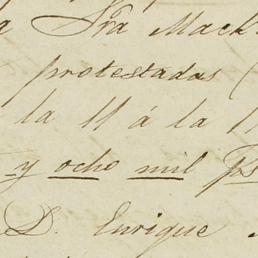 Sra Mack
protestadas (
la 11 á la 1
y ocho mil ps
D. Enrique